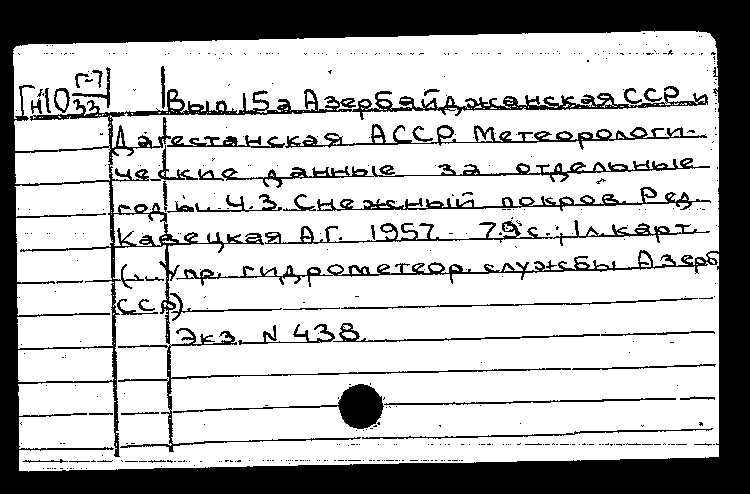 ГН10 Г-7/33 Вып. 15а Азербайджанская ССР и
Дагестанская АССР. Метеорологи-
ческие данные за отдельные
годы. Ч.3. Снежный покров. Ред.
Кавецкая А.Г. 1957. 79 с.; 1л. карт.
(...Упр. гидрометеор. службы Азерб
ССР).
Экз. N 438.